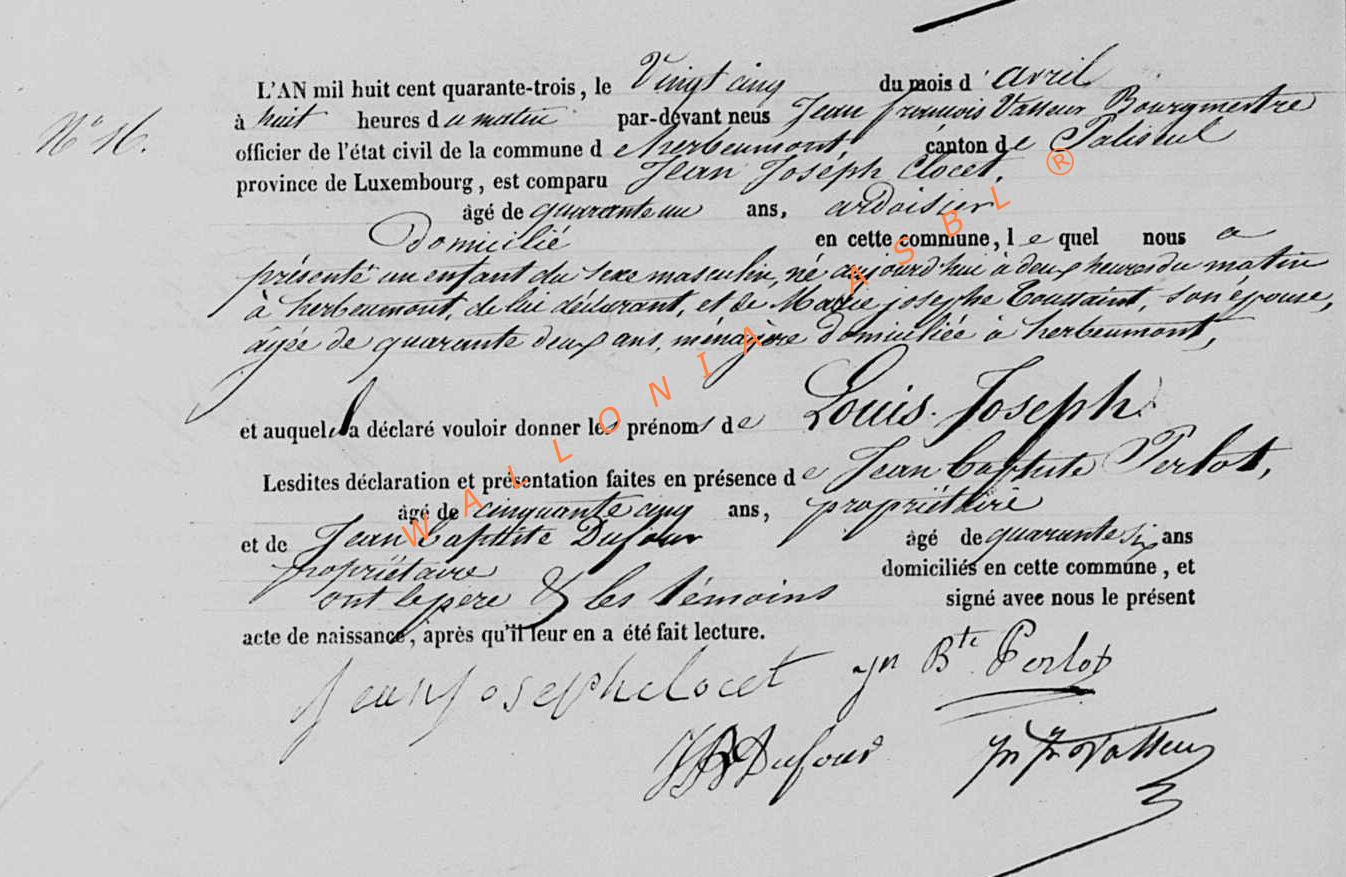 L'AN mil huit cent quarante-trois, le Vingt cinq du mois d'avril
N° 16. à huit heures du matin par-devant nous Jean françois Vasseur Bourgmestre
officier de l'état civil de la commune de herbeumont, canton de Paliseul
province de Luxembourg, est comparu Jean Joséph Clocet,
âgé de quarante un ans, ardoisier
Domicilié en cette commune, lequel nous a
présenté un enfant du sexe masculin, né aujourd'hui à deux heures du matin
à herbeumont, de lui déclarant, et de Marie josephe Toussaint, son épouse,
âgée de quarante deux ans, ménagère domiciliée à herbeumont,
et auquel il a déclaré vouloir donner les prénoms de Louis Joseph.
Lesdites déclaration et présentation faites en présence de Jean baptiste Perlot,
âgé de cinquante cinq ans, propriétaire
et de Jean baptiste Dufour âgé de quarante six ans
propriétaire domiciliés en cette commune, et
ont le pere & les témoins signé avec nous le présent
acte de naissance, après qu'il leur en a été fait lecture.
jean joseph clocet jn Bte Perlot
JB Dufour jn fr Vasseur
WALLONIA ASBL ®